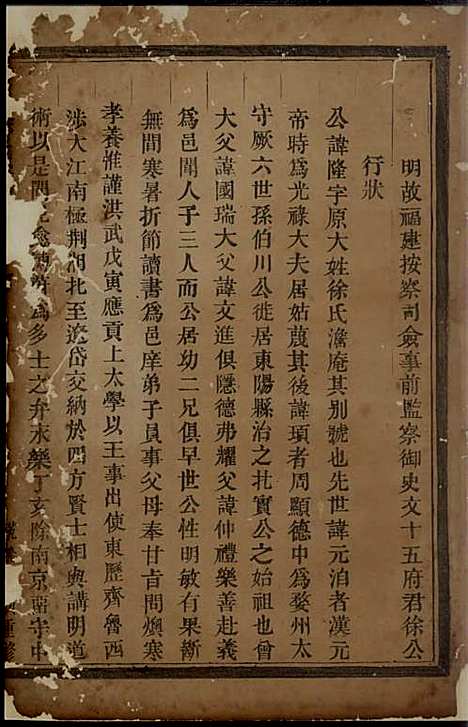 明故福建按察司僉事前監察御史文十五府君徐公
行狀
公諱隆字原大姓徐氏澹庵其別號也先世諱元洎者漢元
帝時為光祿大夫居姑蔑其後諱頊者周顯德中為婺州太
守厥六世孫伯川公徙居東陽縣治之北實公之始祖也曾
大父諱國瑞大父諱文進俱隱德弗耀父諱仲禮樂善赴義
為邑聞人子三人而公居幼二兄俱早世公性明敏有果斷
無間寒暑折節讀書為邑庠弟子員事父母奉甘旨問燠寒
孝養惟謹洪武戊寅應貢上太學以王事出使東歷齊魯西
涉大江南極荆湖北至遼岱交納於四方賢士相與講明道
術以是聞見愈 為多士之弁永樂丁亥除南京留守中
重修